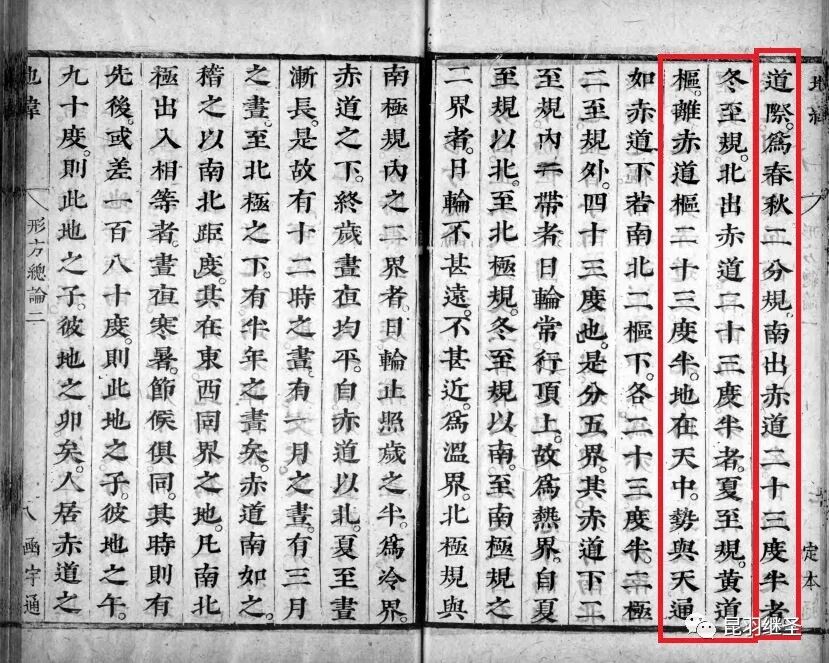 定本
道際。爲春秋二分規。南出赤道二十三度半者
冬至規。北出赤道二十三度半者。夏至規。黃道
樞離赤道樞二十三度半。地在天中。勢與天通
如赤道下若南北二樞下。各二十三度半。二極
二至規外。四十三度也。是分五界。其赤道下二
至規內一帶者。日輪常行頂上。故爲熱界。自夏
至規以北。至北極規。冬至規以南。至南極規之
二界者。日輪不甚遠。不甚近。爲溫界。北極規與
南極規內之二界者。日輪止照歲之半。爲冷界。
赤道之下。終歲晝夜均平。自赤道以北。夏至晝
漸長。是故有十二時之晝。有一月之晝。有三月
之晝。至北極之下。有半年之晝矣。赤道南如之。
稽之以南北距度。其在東西同界之地。凡南北
極出入相等者。晝夜寒暑。節候俱同。其時則有
先後。或差一百八十度。則此地之子。彼地之午。
九十度。則此地之子。彼地之卯矣。人居赤道之
地緯
形方總論二
函宇通
昆羽继圣